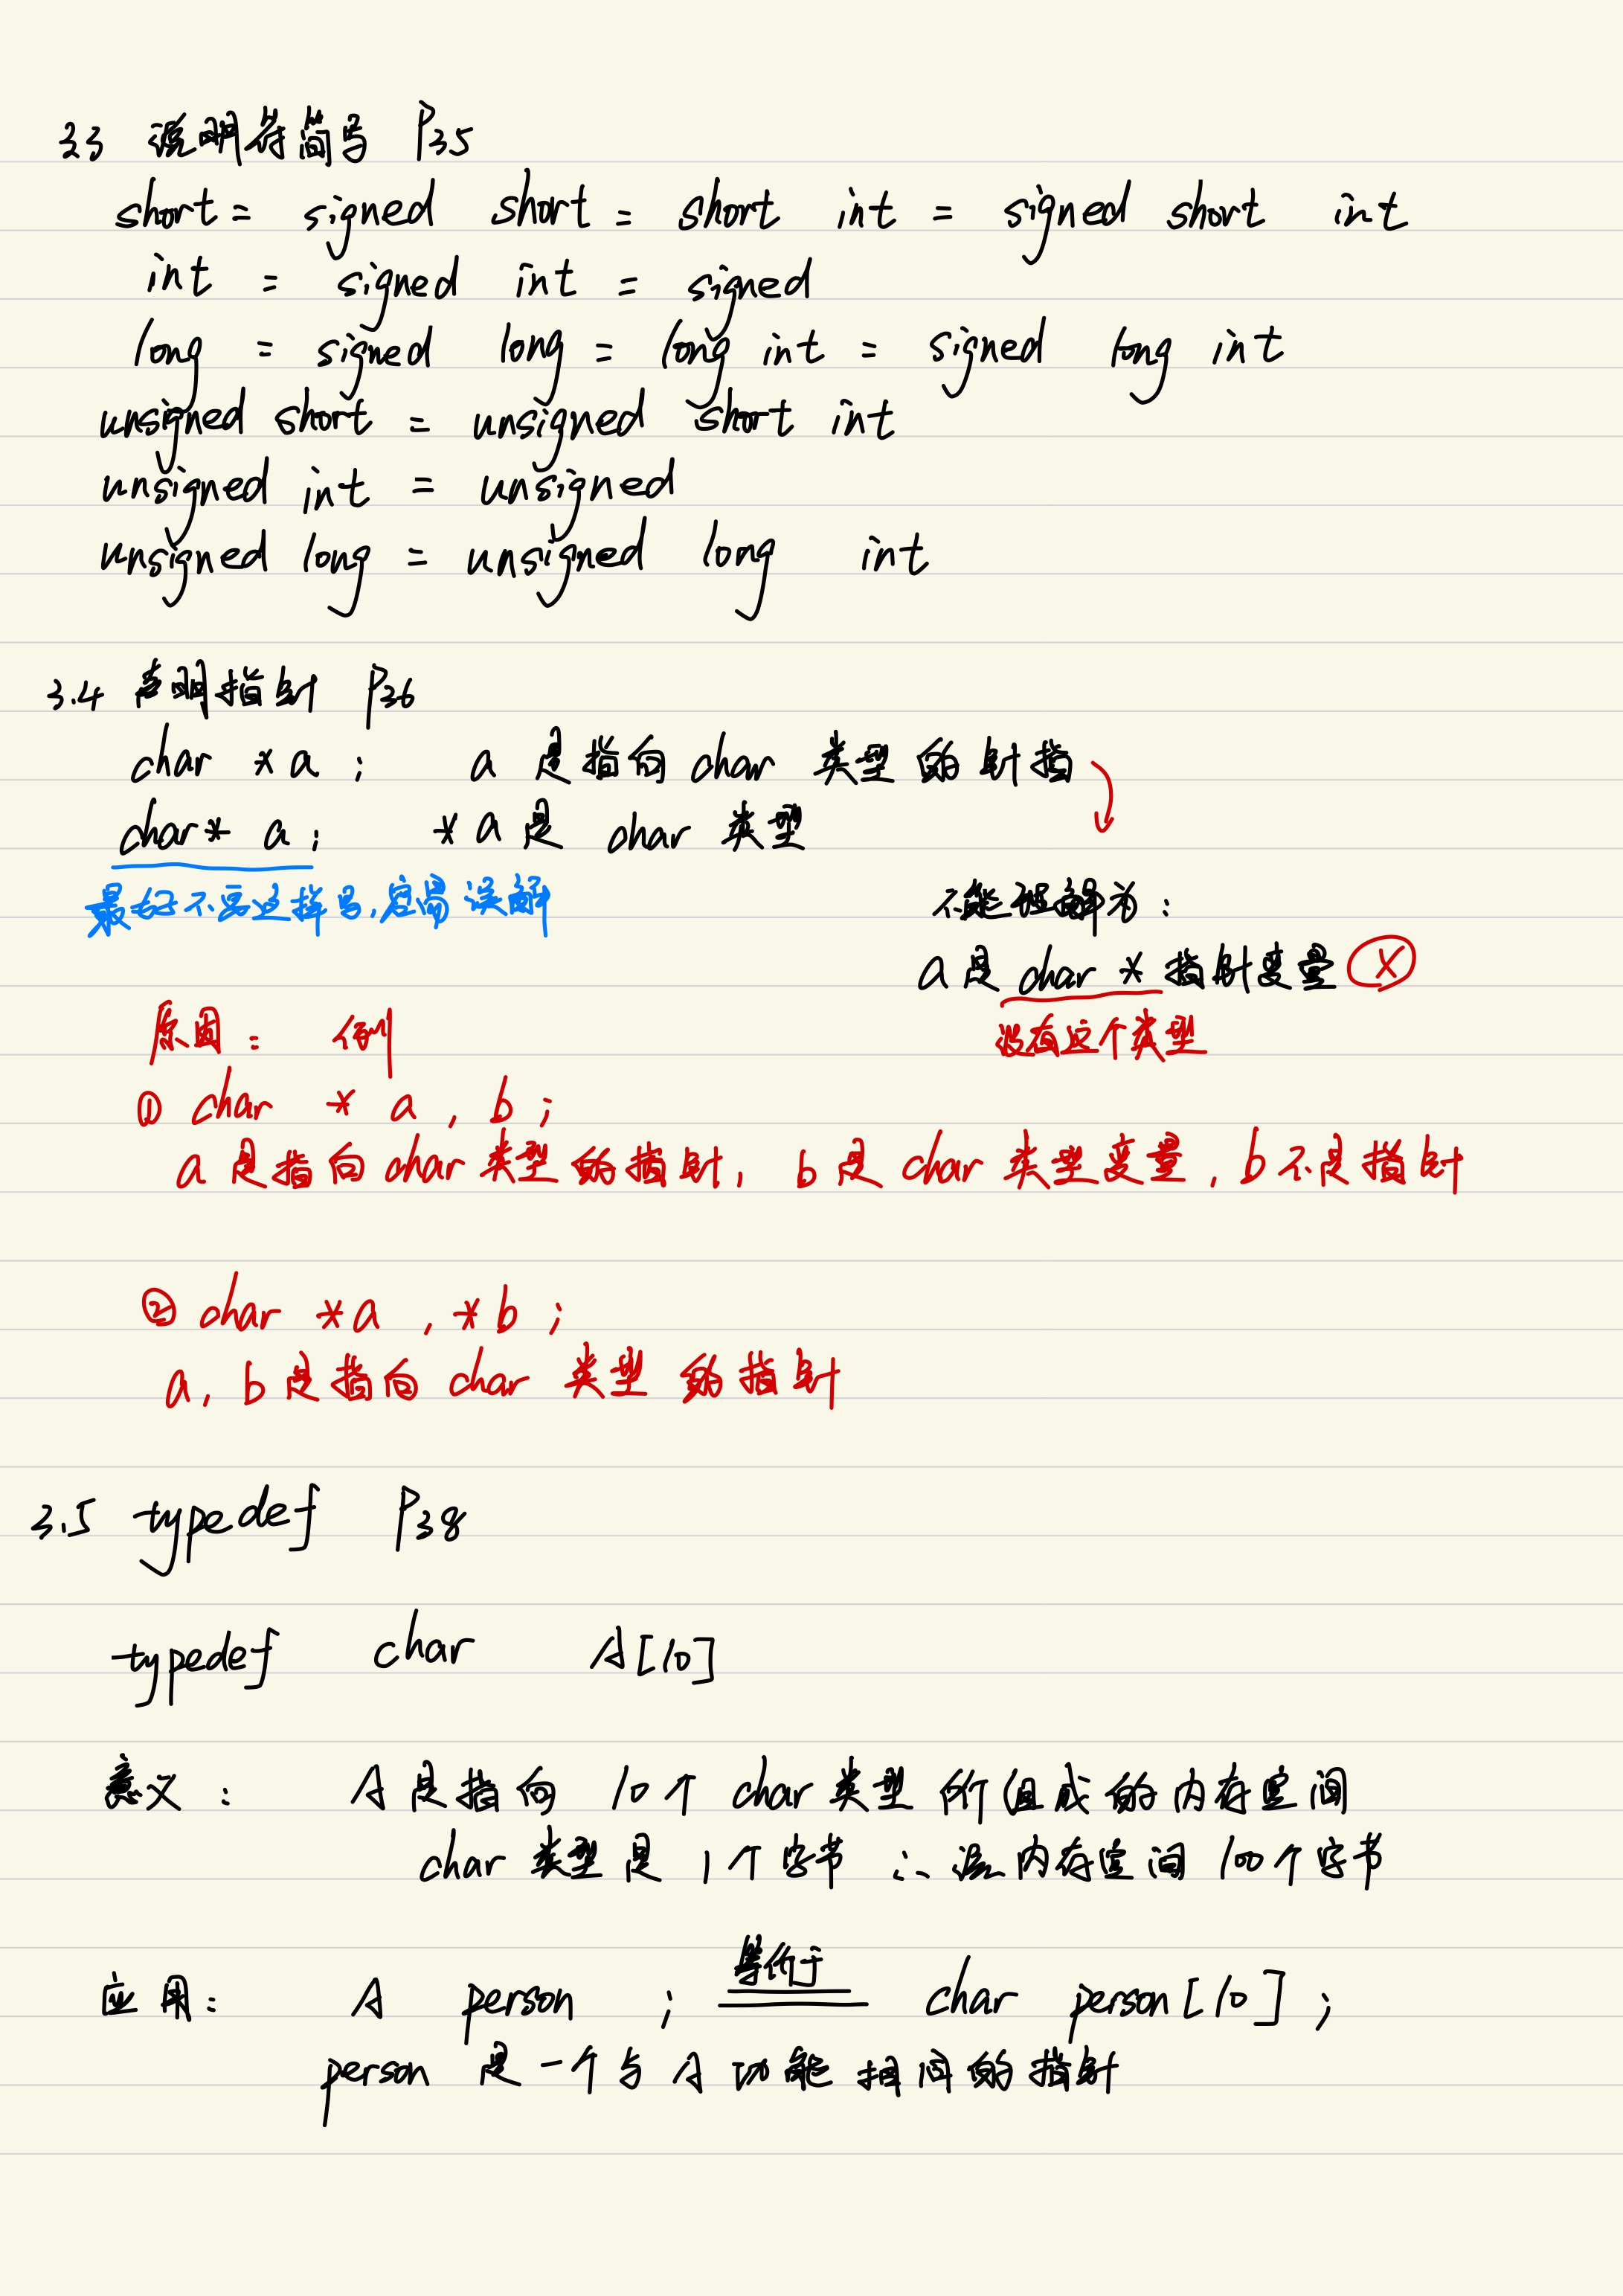 3.3 说明符简写 P35
short = signed short = short int = signed short int
int = signed int = signed
long = signed long = long int = signed long int
unsigned short = unsigned short int
unsigned int = unsigned
unsigned long = unsigned long int
3.4 声明指针 P36
char *a; a 是指向 char 类型的针指
char* a; *a 是 char 类型
最好不要这样写,容易误解
不能理解为:
a 是 char * 指针变量 X
没有这个类型
原因: 例
① char * a, b;
a 是指向 char 类型的指针, b 是 char 类型变量, b 不是指针
② char *a, *b;
a, b 是指向 char 类型的指针
3.5 typedef P38
typedef char A[10]
意义: A 是指向 10个 char 类型所组成的内存空间
char 类型是 1个字节 ∴该内存空间 100个字节
应用: A person ; 等价于 char person[10] ;
person 是一个与 A 功能相同的指针